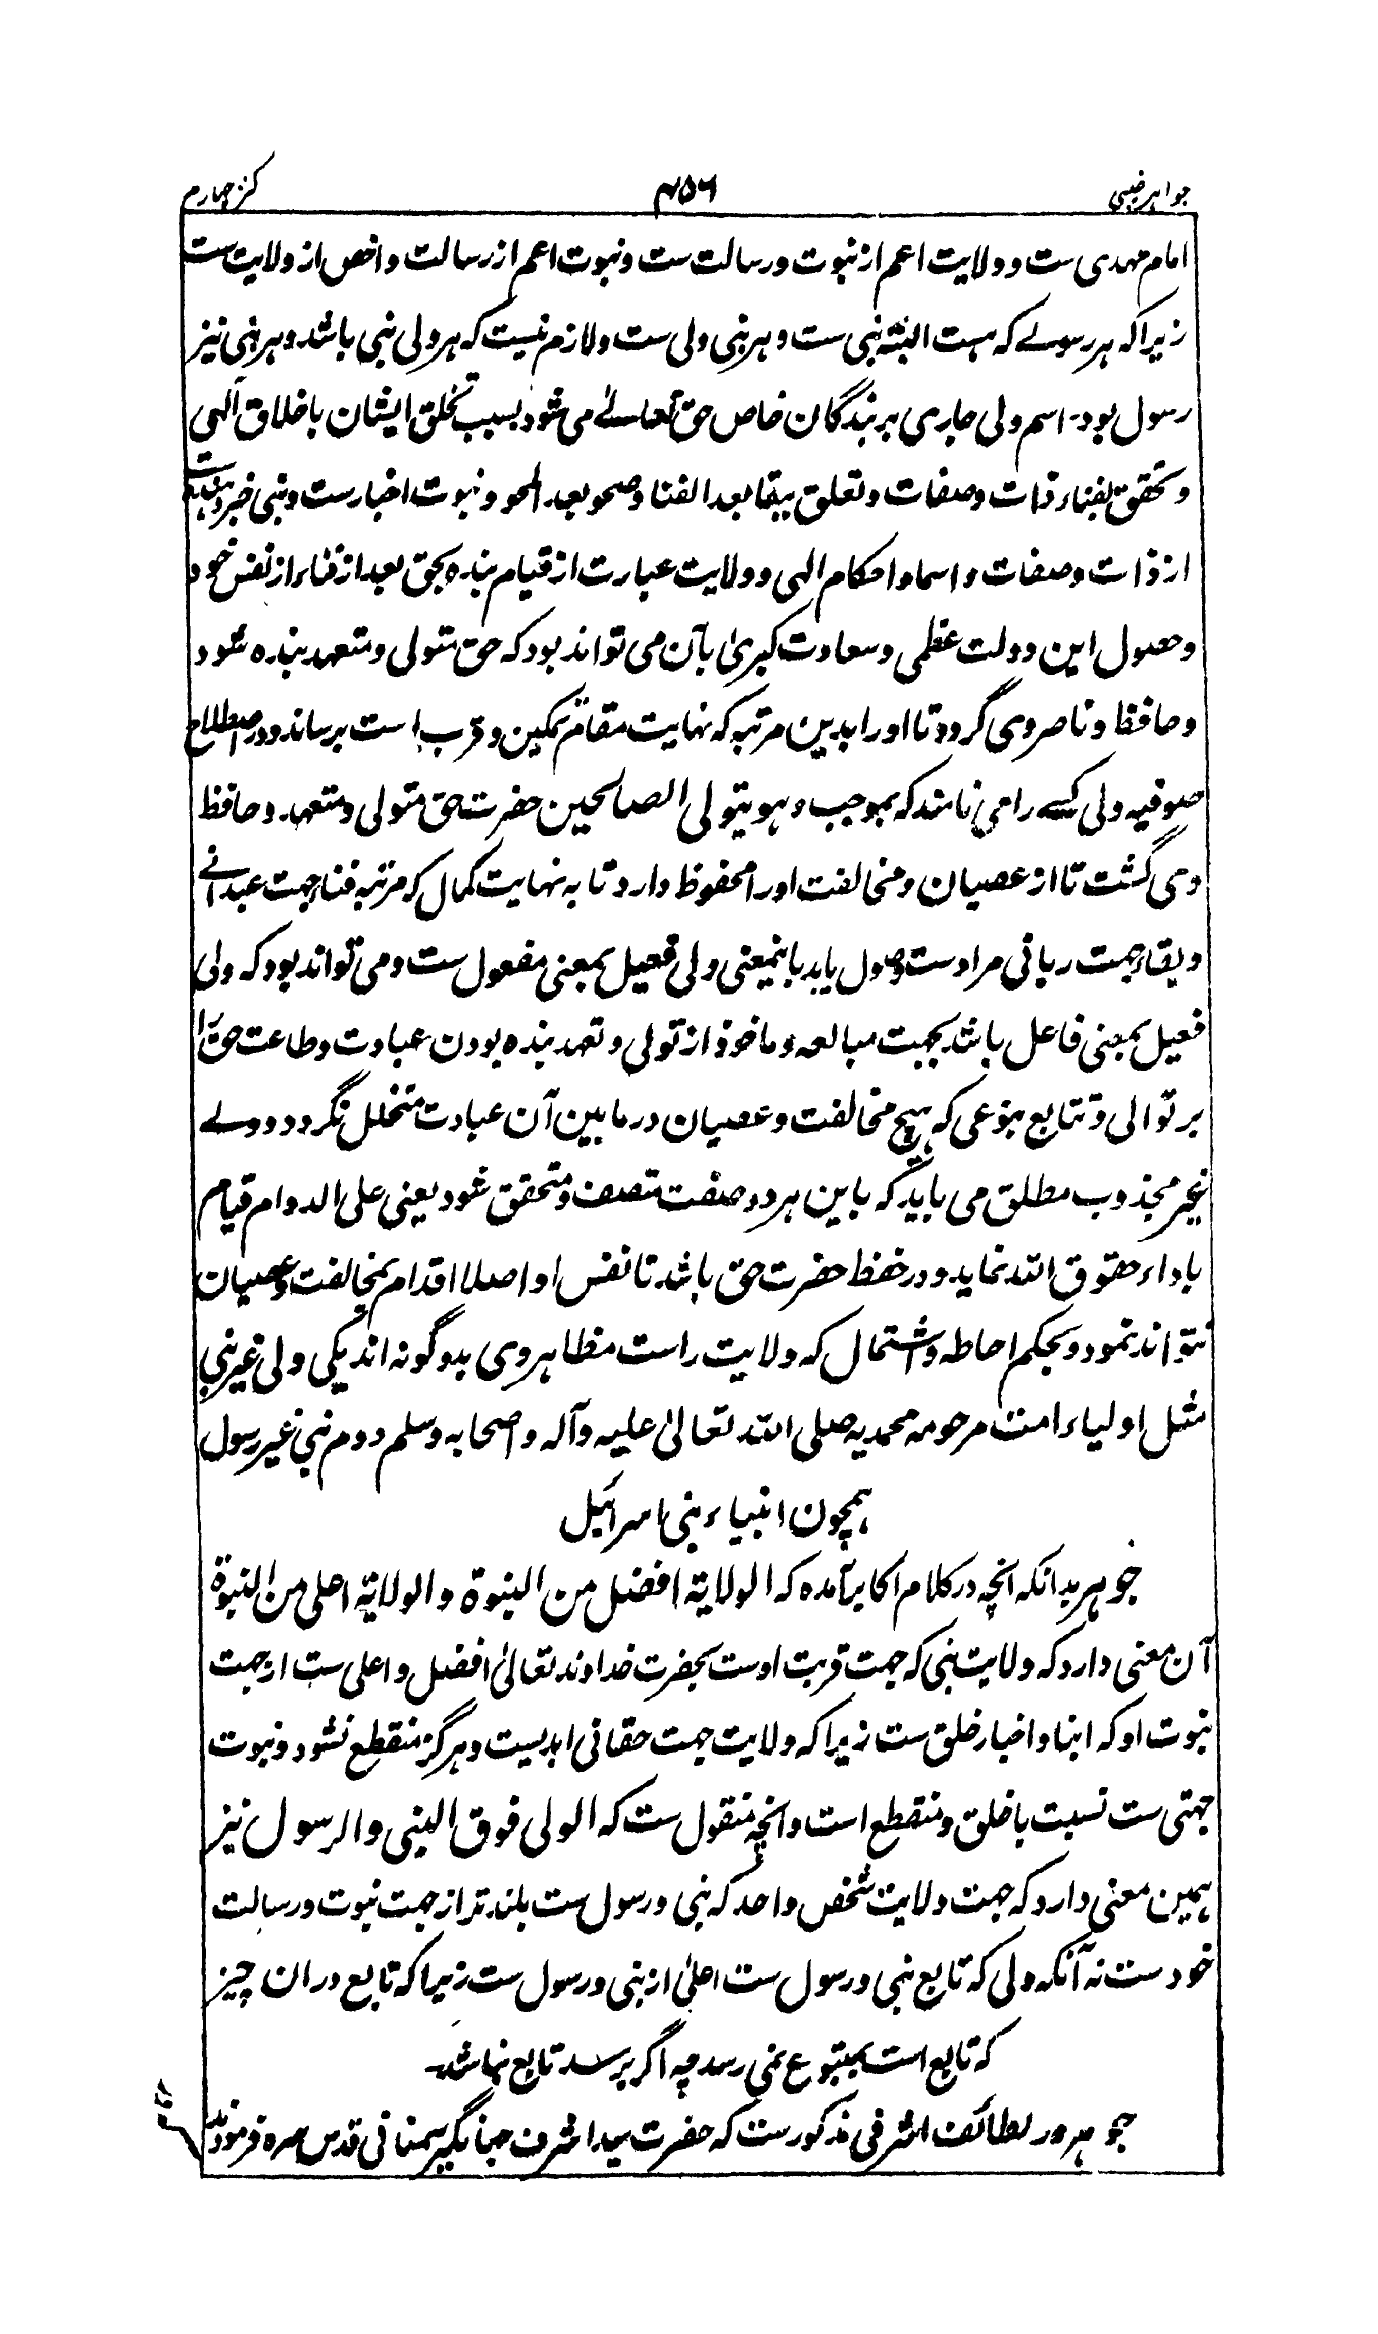 جواهر غیبی ۴۵۶ کنز چهارم
امام مهدی ست و ولایت اعم از نبوت و رسالت ست و نبوت اعم از رسالت و اخص از ولایت ست
زیرا که هر رسولے که هست البته نبی ست و هر نبی ولی ست و لازم نیست که هر ولی نبی باشد و هر نبی نیز
رسول بود۔ اسم ولی جاری بر بندگان خاص حق تعالےٰ می شود بسبب تخلق ایشان باخلاق الهی
و تحقق بفناء ذات و صفات و تعلق ببقا بعد الفنا و صحو بعد المحو و نبوت اخبار ست و نبی خبر دهنده است
از ذات و صفات و اسما و احکام الهی و ولایت عبارت از قیام بنده بحق بعد از فناء از نفس خود
و حصول این دولت عظمی و سعادت کبریٰ بآن می تواند بود که حق متولی و متعهد بنده شود
و حافظ و ناصر وی گردد تا او را بدین مرتبه که نهایت مقام تمکین و قرب است برساند و در اصطلاح
صوفیه ولی کسے را می نامند که بموجب و هو یتولی الصالحین حضرت حق متولی و متعهد و حافظ
وی گشت تا از عصیان و مخالفت او را محفوظ دارد تا به نهایت کمال که مرتبه فنا جهت عبدانے
و بقاء جهت ربانی مراد ست وصول یابد باینمعنی ولی فعیل بمعنی مفعول ست و می تواند بود که ولی
فعیل بمعنی فاعل باشد بجهت مبالغه و ماخوذ از تولی و تعهد بنده بودن عبادت و طاعت حق را
بر توالی و تتابع بنوعی که هیچ مخالفت و عصیان در ما بین آن عبادت متخلل نگردد و ولے
غیر مجذوب مطلق می باید که باین هر دو صفت متصف و متحقق شود یعنی علی الدوام قیام
باداء حقوق الله نماید و در حفظ حضرت حق باشد تا نفس او اصلا اقدام بمخالفت و عصیان
نتواند نمود و بحکم احاطه و اشتمال که ولایت راست مظاهر وی بدو گونه اند یکی ولی غیر نبی
مثل اولیاء امت مرحومه محمدیه صلی الله تعالیٰ علیه و آله و اصحابه و سلم دوم نبی غیر رسول
همچون انبیاء بنی اسرائیل
جوهر بدانکه آنچه در کلام اکابر آمده که الولایة افضل من النبوة و الولایة اعلی من النبوة
آن معنی دارد که ولایت نبی که جهت قربت اوست بحضرت خداوند تعالیٰ افضل و اعلی ست از جهت
نبوت او که انبا و اخبار خلق ست زیرا که ولایت جهت حقانی ابدیست و هرگز منقطع نشود و نبوت
جهتی ست نسبت با خلق و منقطع است و آنچه منقول ست که الولی فوق النبی و الرسول نیز
همین معنی دارد که جهت ولایت شخص واحد که نبی و رسول ست بلند تر از جهت نبوت و رسالت
خود ست نه آنکه ولی که تابع نبی و رسول ست اعلیٰ از نبی و رسول ست زیرا که تابع در ان چیز
که تابع است بمتبوع نمی رسد چه اگر برسد تابع نباشد۔
جوهر در لطائف اشرفی مذکور ست که حضرت سید اشرف جهانگیر سمنانی قدس سره فرمودند